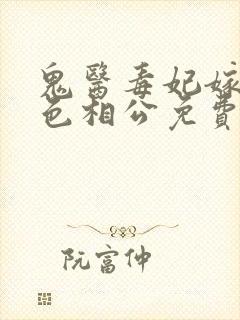 鬼醫毒妃嫁
色相公免費
阮富仲